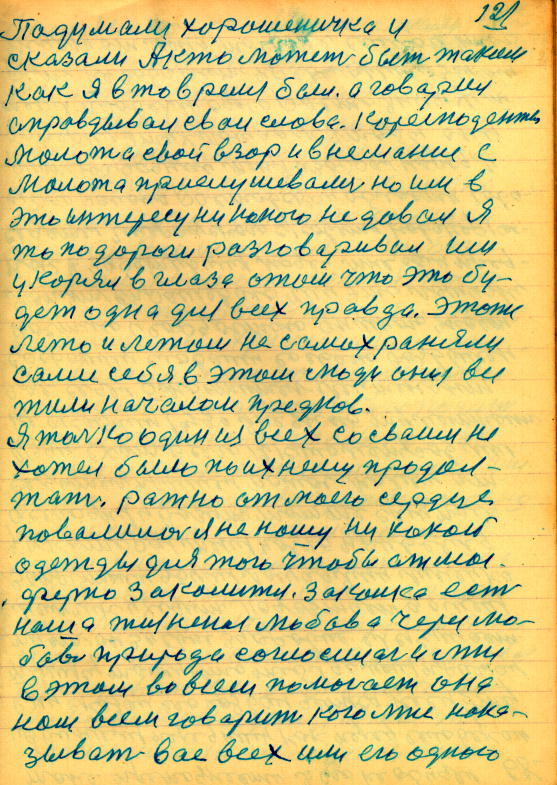 121
Подумали хорошеничка и
сказали А кто может быт таким
как я в то время был. а говарил
оправдывал сваи слова. Коресподенты
моложа свой взор и внемание с
молжа прислушевалис но им в
это интересу никокого не довал Я
то по дороги разговаривал им
укорял в глаза о том что это бу-
дет одна для всех правда. Этоти
лето и летом не самохраняли
сами себя в этом люди они все
жили началом предков.
Я толко один из всех со сваим не
хотел было по ихнему продол-
жат.  от моего сердца
повалилос я не ношу ни какой
одежды для того чтобы от мое.
 Закалити. Закалка ест
наша жизненая любов а через лю-
бов природа согласилас и мне
в этом во всем помогает она
нам всем говарит кого мне нока-
зыват вас всех или его одного